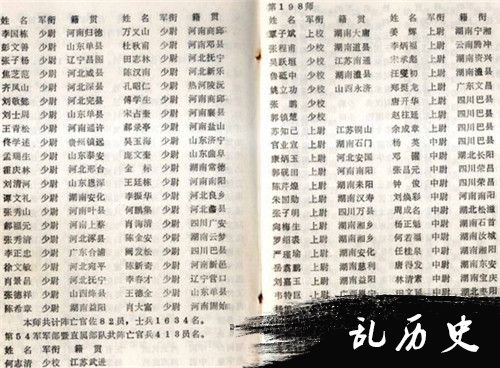 姓名 军衔 籍贯
李国栋 少尉 河南归德
彭文善 少尉 山东单县
张子杨 少尉 辽宁昌图
焦芝范 少尉 河北威县
齐凤山 少尉 河北深县
刘敬懿 少尉 河北完县
刘士周 少尉 山东单县
王青松 少尉 河南通许
佟学述 少尉 贵州镇远
孟瑞生 少尉 山东泰安
霍庆林 少尉 河北邢台
刘清河 少尉 山东恩深
谭文礼 少尉 湖南安化
张秀山 少尉 河南叶县
郝福元 少尉 河南上蔡
张秀清 少尉 河北涿县
李正忠 少尉 广东合浦
徐文敏 少尉 河北宛平
肖景昌 少尉 河北抚宁
张德祥 少尉 山西绛县
陈希章 少尉 湖南益阳
姓名 军衔 籍贯
万义山 少尉 河南商邱
杜秋甫 少尉 河南邓县
田志林 少尉 河北抚宁
陈汉南 少尉 河北新乐
孔昭仁 少尉 热河陵沅
傅学生 少尉 河南商邱
宋占奎 少尉 河南襄县
郝录亭 少尉 河南盐山
吴玉海 少尉 山东济宁
庞文奎 少尉 山东曲阜
金标 少尉 湖南常德
王廷栋 少尉 河南南阳
李振华 少尉 河北良乡
何鹏集 少尉 河北蠡县
肖询清 少尉 四川广安
陈金安 少尉 湖南云梦
阙发松 少尉 四川广安
陈新奇 少尉 河南新邑
李存才 少尉 辽宁营口
王德全 少尉 山东单县
肖大富 少尉 河南固始
本师共计阵亡官佐82员，士兵1634名。
第54军军部暨直属部队共阵亡官兵413员名。
姓名 军衔 籍贯
何志清 少尉 江苏武进
第198师
姓名 军衔 籍贯
覃子斌 上校 湖南大庸
张程甫 少校 湖南澧县
吴跃垣 少校 江苏南通
鲁砥中 少校 湖南澧县
姚立功 少校 山西永济
张鹏 少校
郭镇楚 少校
苏知己 上尉 江苏铜山
官业宣 上尉 湖南石门
康炳玉 上尉 河北安国
郭砚田 上尉 河南南阳
陈芹煌 上尉 湖南耒阳
朱国勋 上尉 湖南汉寿
张子明 上尉 四川万县
向梅生 上尉 湖南
罗绍裘 上尉 湖南
严瑾瑜 上尉 湖南安化
岳嘉鹏 上尉 湖南慈利
刘嘉巨 上尉 湖南
姓名 军衔 籍贯
姜辉 上尉 湖南宁湘
李炳福 上尉 云南腾冲
武励 上尉 湖南资兴
汪燮初 上尉 湖南澧县
李挺光 上尉 广东文昌
唐开华 上尉 四川邑县
赵廷 上尉 四川
余成章 上尉 四川万县
杨英 中尉
邓 中尉 湖北长阳
张凯 中尉 四川荣昌
张昌元 中尉 四川荣昌
钟俊 中尉 四川
刘焕彩 中尉 湖南常德
周成名 中尉 湖北松滋
何若愚 中尉 四川石柱
杨福生 中尉 湖南汝城
何福 中尉 湖南湘阴
任泉 中尉 湖南
唐得友 中尉 湖南宝庆
林济东 中尉 湖南
乱历史